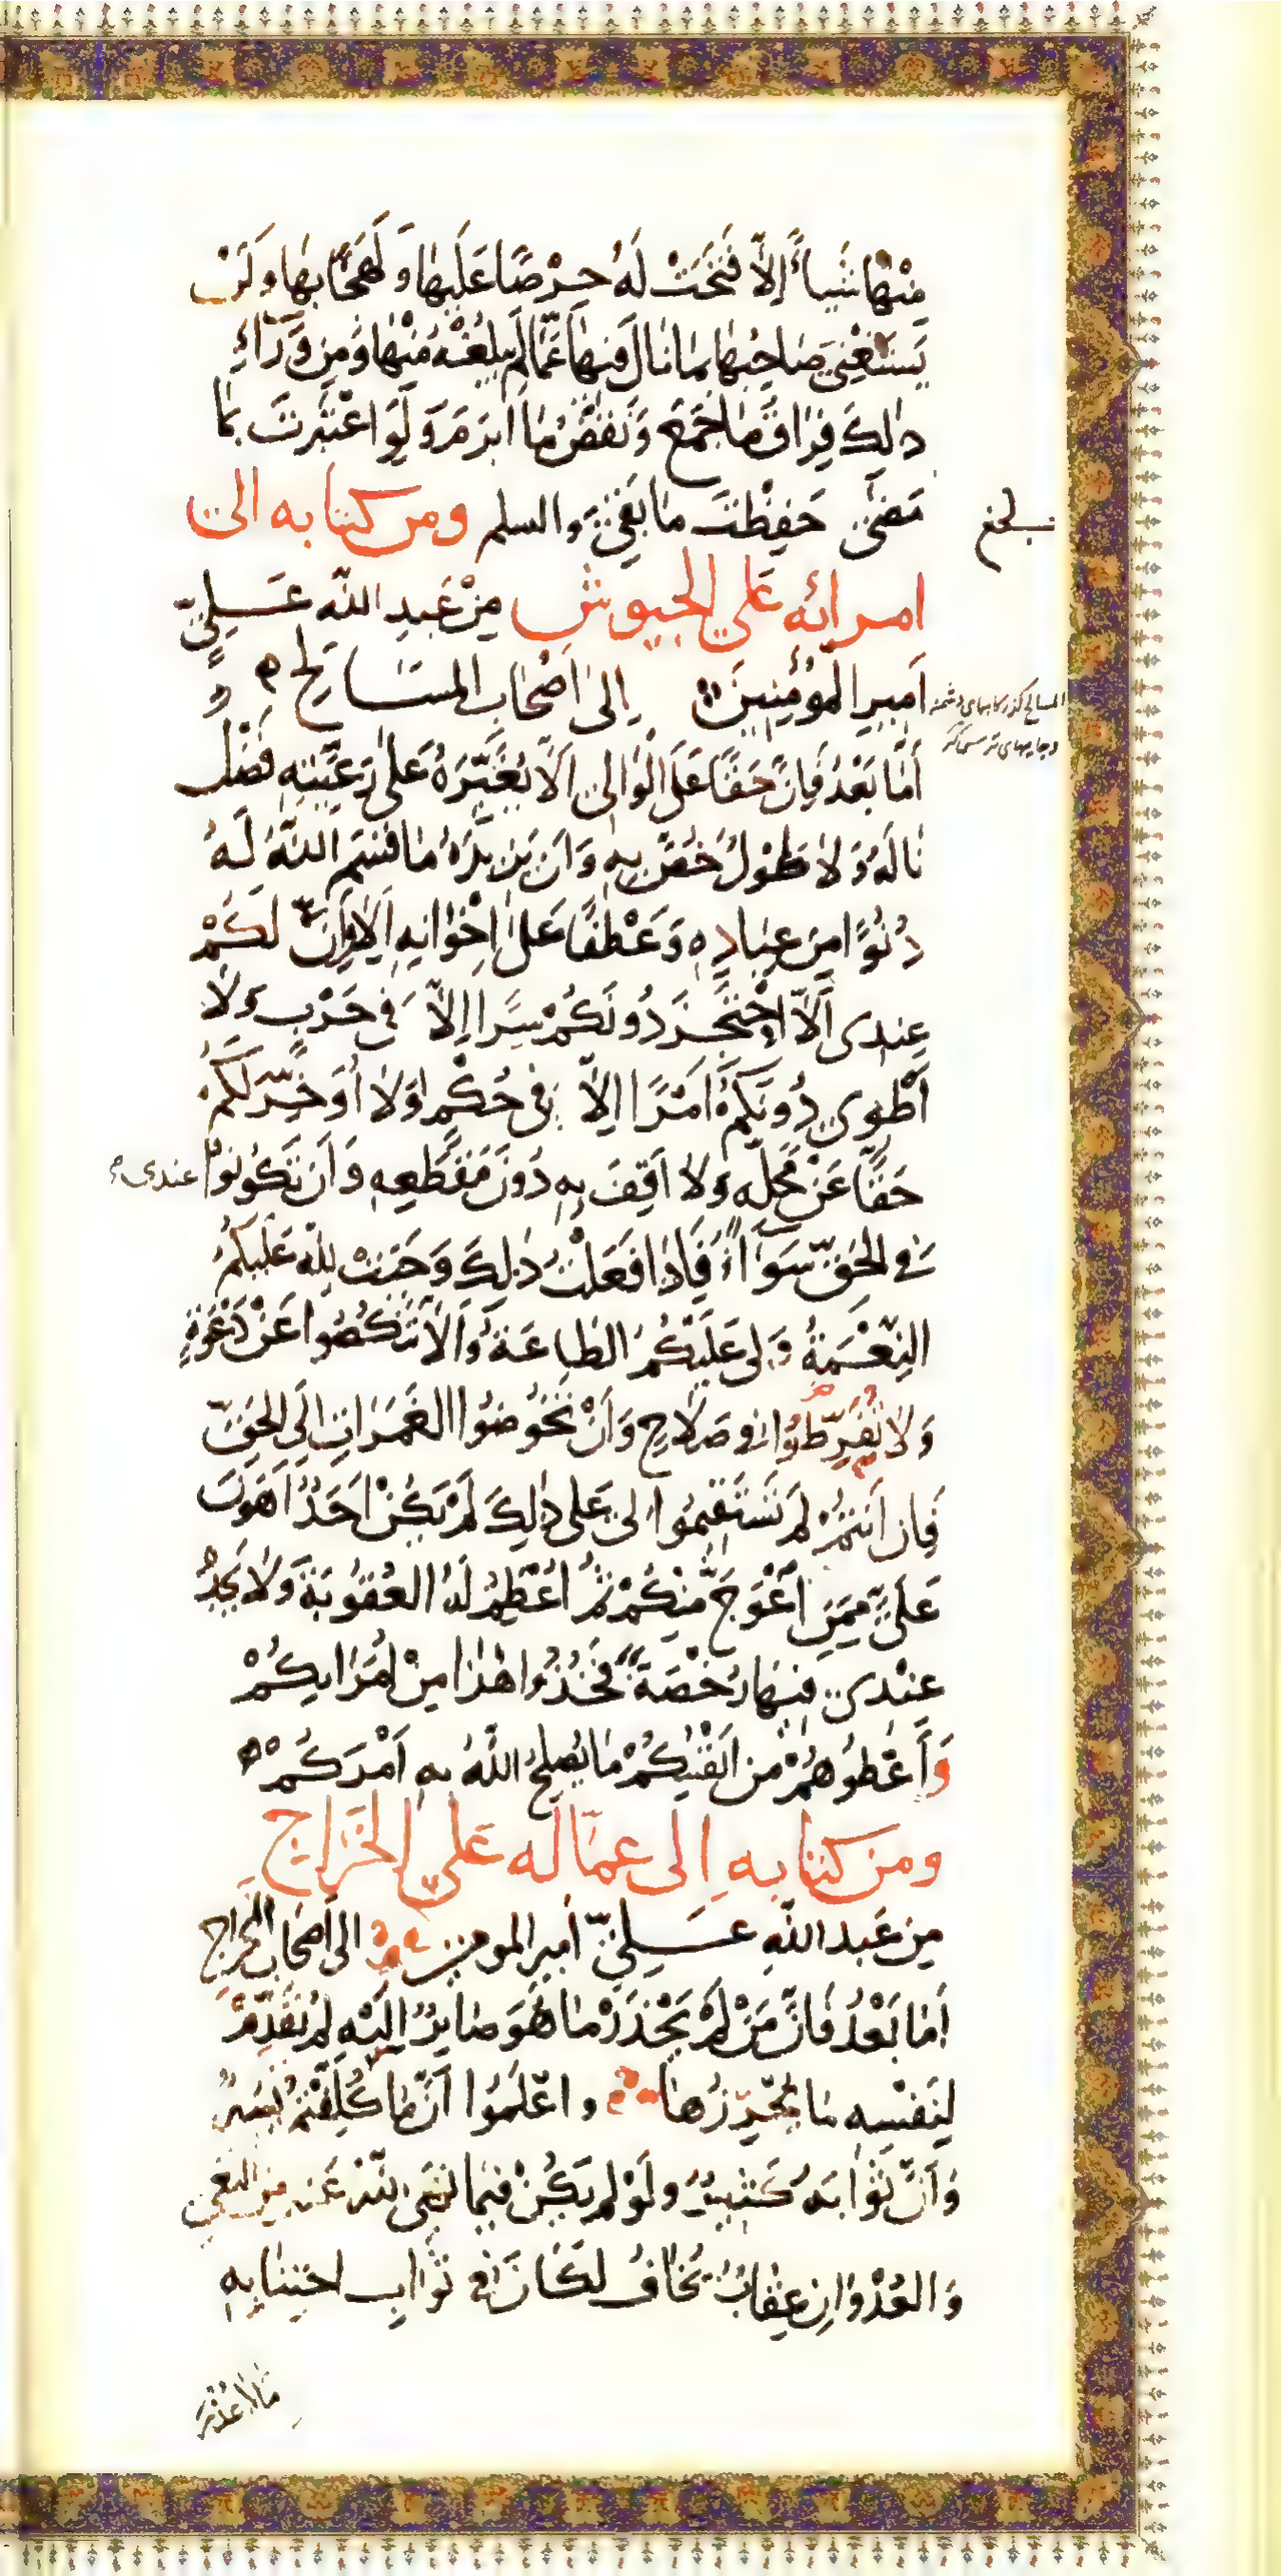 مِنْهَا شَيْـاءً إِلاَّ فَتَحَتْ لَهُ حِرْصًا عَلَيْهَا وَ لَهَجًا بِهَا وَ لَنْ
يَسْتَغْنِيَ صَاحِبُهَا بِمَا نَالَ فِيهَا عَمَّا لَمْ يَبْلُغْهُ مِنْهَا وَ مِنْ وَرَآءِ
ذٰلِكَ فِرَاقُ مَا جَمَعَ وَ نَقْضُ مَا اَبْرَمَ وَ لَوِ اعْتَبَرْتَ بِمَا
مَضىٰ حَفِظْتَ مَا بَقِيَ وَ السلم ومن كتابه الى
امرائه عَلَى الجيوشِ مِنْ عَبدِ اللّه عَـلِيٍّ
اَمِيرِ الْمُؤْمِنِينَ اِلىٰ اَصْحَابِ الْمَسَالِحِ
أَمَّا بَعْدُ فَاِنَّ حَقًّا عَلَى الْوَالِى اَلاَّ يُغَيِّرَهُ عَلىٰ رَعِيَّتِهِ فَضْلٌ
نَالَهُ وَ لاَ طَوْلٌ خُصَّ بِهِ وَ اَنْ يَزِيدَهُ مَا قَسَمَ اللّهُ لَـهُ
دُنُوًّا مِنْ عِبَادِهِ وَ عَطْفًا عَلىٰ اِخْوَانِهِ اَلاَ وَ اِنَّ لَكُمْ
عِنْدِى اَلاَّ اَحْتَجِزَ دُونَكُمْ سِرًّا اِلاَّ فِى حَرْبٍ وَ لاَ
اَطْوِىَ دُونَكُمْ اَمْرًا اِلاَّ فِى حُكْمٍ وَ لاَ اُؤَخِّرَ لَكُمْ
حَقًّا عَنْ مَحَلِّه وَ لاَ اَقِفَ بِهِ دُونَ مَقْطَعِهِ وَ اَنْ تَكُونُوا عندى
فِى الْحَقِّ سَوَاءً فَاِذَا فَعَلْتُ ذٰلِكَ وَجَبَتْ لِلّهِ عَلَيْكُمُ
النِّعْمَةُ وَ لِى عَلَيْكُمُ الطَّاعَةُ وَ اَلاَّ تَنْكُصُوا عَنْ دَعْوَةٍ
وَ لاَ تُفَرِّطُوا فِى صَلاَحٍ وَ اَنْ تَخُوضُوا الْغَمَرَاتِ اِلَى الْحَقِّ
فَاِنْ اَنْتُمْ لَمْ تَسْتَقِيمُوا لِى عَلىٰ ذٰلِكَ لَمْ يَكُنْ اَحَدٌ اَهْوَنَ
عَلَىَّ مِمَّنِ اعْوَجَّ مِنْكُمْ ثُمَّ اُعْظِمُ لَهُ الْعُقُوبَةَ وَ لاَ يَجِدُ
عِنْدِى فِيهَا رُخْصَةً فَخُذُوا هٰذَا مِنْ اُمَرَائِكُمْ
وَ اَعْطُوهُمْ مِنْ اَنْفُسِكُمْ مَا يُصْلِحُ اللّهُ بِهِ اَمْرَكُمْ
ومن كتابه اِلى عمّاله عَلى الخَرَاجِ
مِنْ عَبدِ اللّهِ عَـلِيٍّ أمير المومنين الى اَصْحَابِ الْخَرَاجِ
اَمَّا بَعْدُ فَاِنَّ مَنْ لَمْ يَحْذَرْ مَا هُوَ صَائِرٌ اِلَيْهِ لَمْ يُقَدِّمْ
لِنَفْسِهِ مَا يُحْرِزُهَا وَ اعْلَمُوا اَنَّ مَا كُلِّفْتُمْ يَسِيرٌ
وَ اَنَّ ثَوَابَهُ كَثِيرٌ وَ لَوْ لَمْ يَكُنْ فِيمَا نَهَى اللّهُ عَنْهُ مِنَ الْبَغْىِ
وَ الْعُدْوَانِ عِقَابٌ يُخَافُ لَكَانَ فِى ثَوَابِ اجْتِنَابِهِ
مَا لاَ عُذْرَ